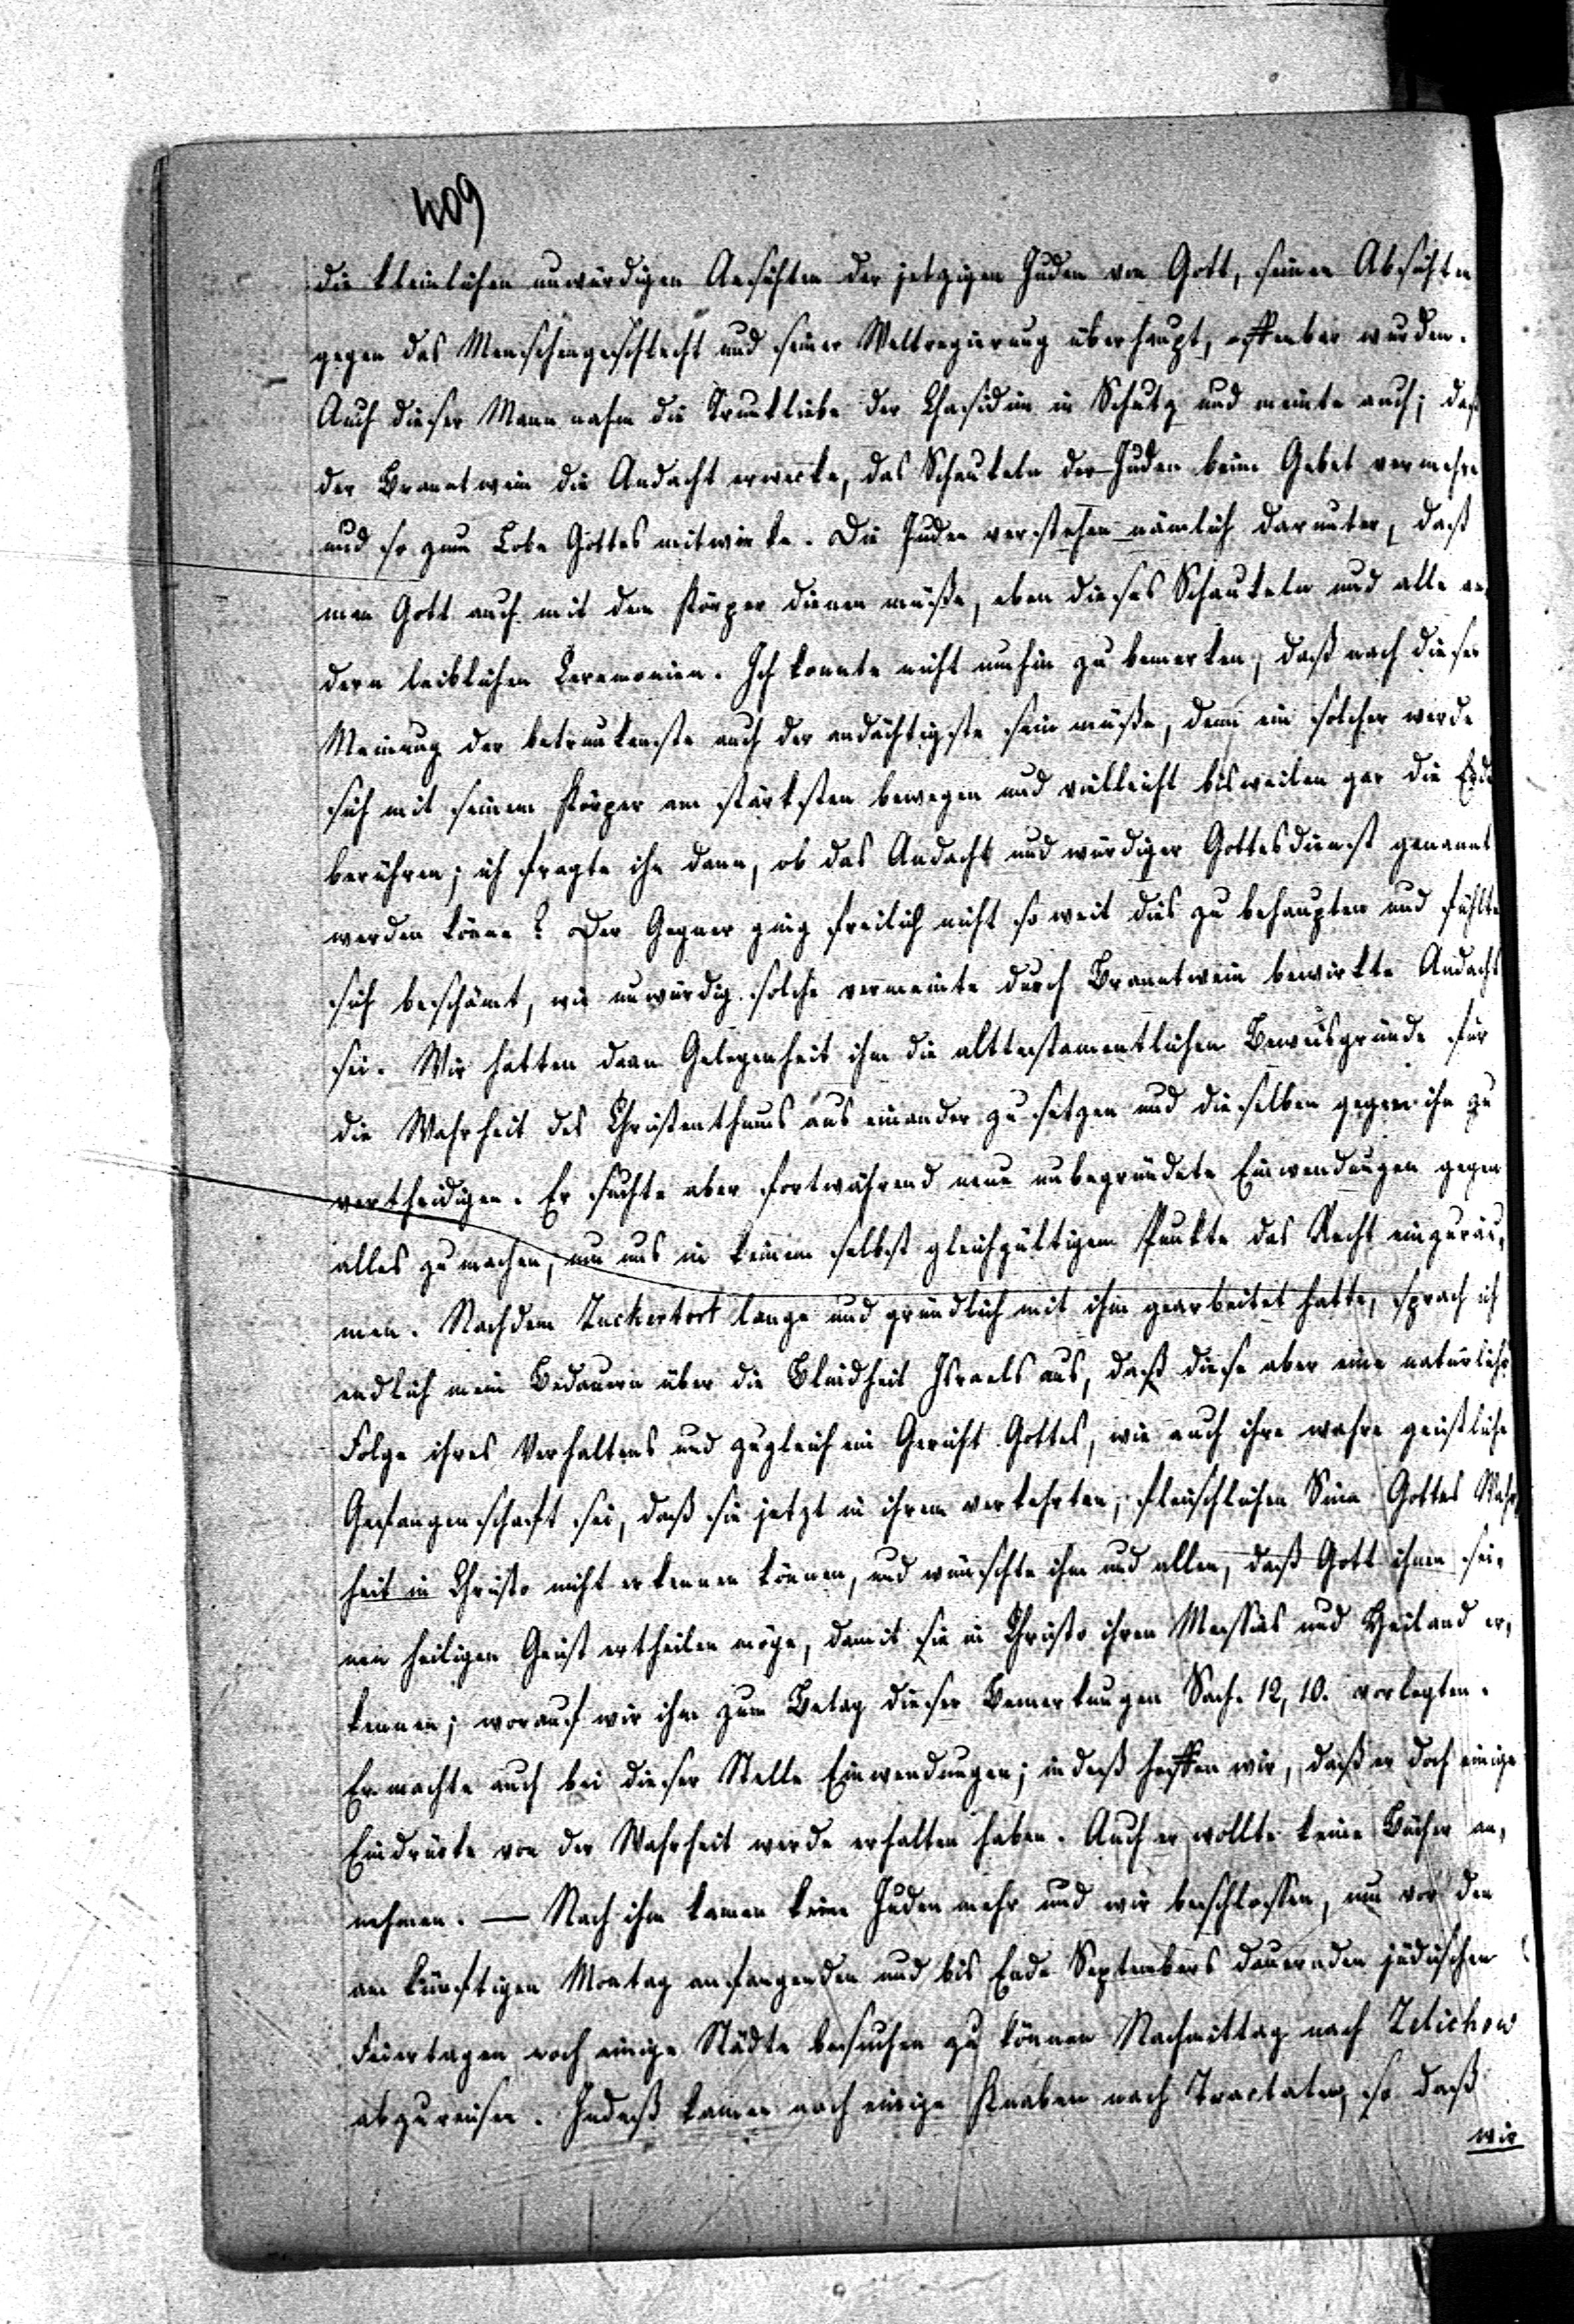 409
die kleinlichen unwürdigen Ansichten der jetzigen Juden von Gott, seinen Absichten
gegen das Menschengeschlecht und seiner Weltregierung überhaupt, offenbar wurden.
Auch dieser Mann nahm die Trunkliebe der Chasidim in Schutz und meinte auch; daß
der Branntwein die Andacht erwecke, das Schaukeln der Juden beim Gebet vermehre
und so zum Lobe Gottes mitwirke. Die Juden verstehen nämlich darunter, daß
man Gott auch mit dem Körper dienen müße, eben dieses Schaukeln und alle an,
dern leiblichen Ceremonien. Ich konnte nicht umhin zu bemerken, daß nach dieser
Meinung der betrunkenste auch der andächtigste sein müße, denn ein solcher werde
sich mit seinem Körper am stärksten bewegen und vielleicht bisweilen gar die Erde
berühren; ich fragte ihn dann, ob das Andacht und würdiger Gottesdienst genannt
werden könne? Der Gegner ging freilich nicht so weit dies zu behaupten und fühlte
sich beschämt, wie unwürdig solche vermeinte durch Branntwein bewirkte Andacht
sei. Wir hatten dann Gelegenheit ihm die alttestamentlichen Beweisgründe für
die Wahrheit des Christenthums aus einander zu setzen und dieselben gegen ihn zu
vertheidigen. Er suchte aber fortwährend neue unbegründete Einwendungen gegen
alles zu machen, um uns in keinem selbst gleichgültigem Punkte das Recht einzuräu,
men. Nachdem Zuckertort lange und gründlich mit ihm gearbeitet hatte, sprach ich
endlich mein Bedauern über die Blindheit Israels aus, daß diese aber eine natürliche
Folge ihres Verhaltens und zugleich ein Gericht Gottes, wie auch ihre wahre geistliche
Gefangenschaft sei, daß sie jetzt in ihrem verkehrten, fleischlichen Sinn Gottes Wahr,
heit in Christo nicht erkennen können, und wünschte ihm und allen, daß Gott ihnen sei,
nen heiligen Geist ertheilen möge, damit sie in Christo ihren Messias und Heiland er,
kennen; worauf wir ihm zum Belag dieser Bemerkungen Sach. 12, 10. vorlegten.
Er machte auch bei dieser Stelle Einwendungen; indeß hoffen wir, daß er doch einige
Eindrücke von der Wahrheit werde erhalten haben. Auch er wollte keine Bücher an,
nehmen. — Nach ihm kamen keine Juden mehr und wir beschlossen, um vor den
am künftigen Montag anfangenden und bis Ende Septembers dauernden jüdischen
Feiertagen noch einige Städte besuchen zu können Nachmittag nach Zelichow
abzureisen. Indeß kamen noch einige Knaben nach Tractaten, so daß
wir